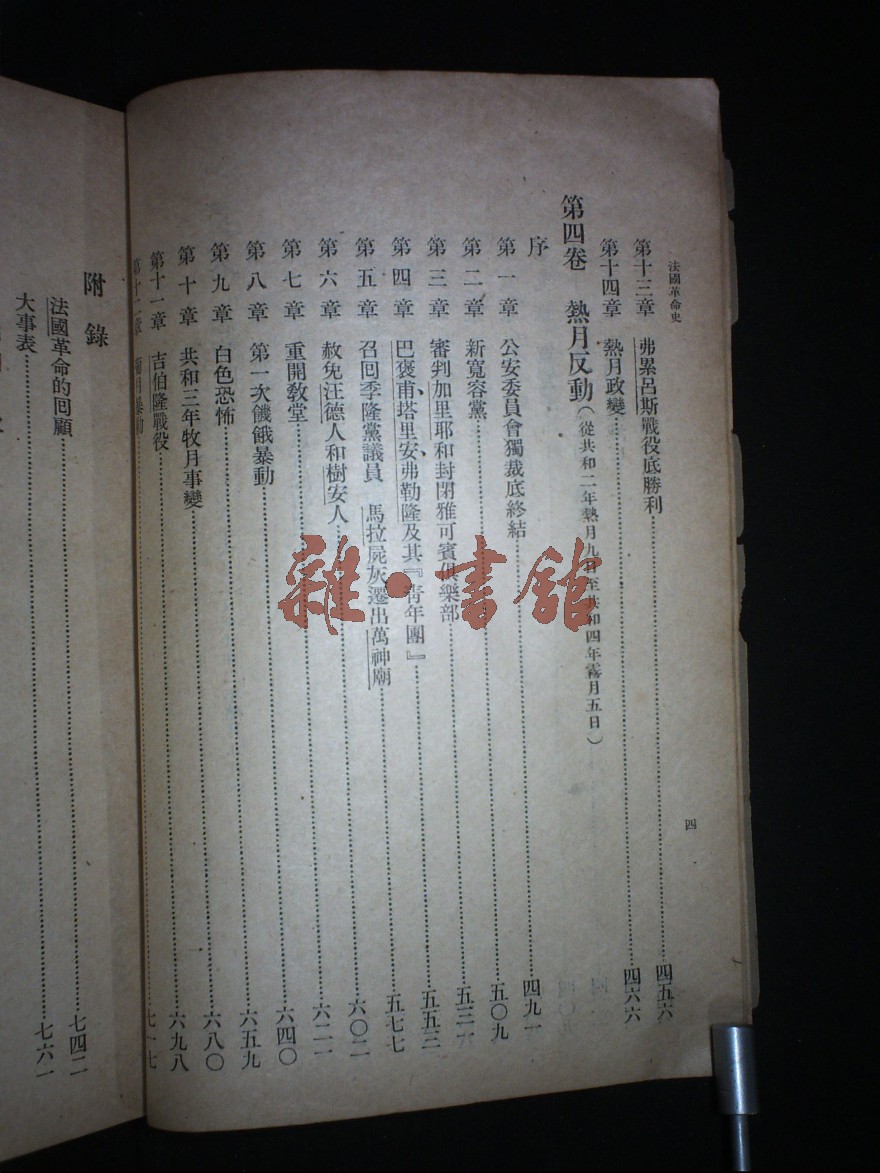 法國革命史
四
第十三章 弗累呂斯戰役底勝利 四五六
第十四章 熱月政變 四六六
第四卷 熱月反動(從共和二年熱月九日至共和四年霧月五日)
序 四九一
第一章 公安委員會獨裁底終結 五〇九
第二章 新寬容黨
第三章 審判加里耶和封閉雅可賓俱樂部 五五三
第四章 巴褒甫、塔里安、弗勒隆及其『青年團』 五七七
第五章 召回季隆黨議員 馬拉屍灰遷出萬神廟 六〇二
第六章 赦免汪德人和樹安人
第七章 重開教堂 六四〇
第八章 第一次饑餓暴動 六五九
第九章 白色恐怖 六八〇
第十章 共和三年牧月事變 六九八
第十一章 吉伯隆戰役 七一七
第十二章
附錄
法國革命的回顧 七四二
大事表 七六一
雜·書館